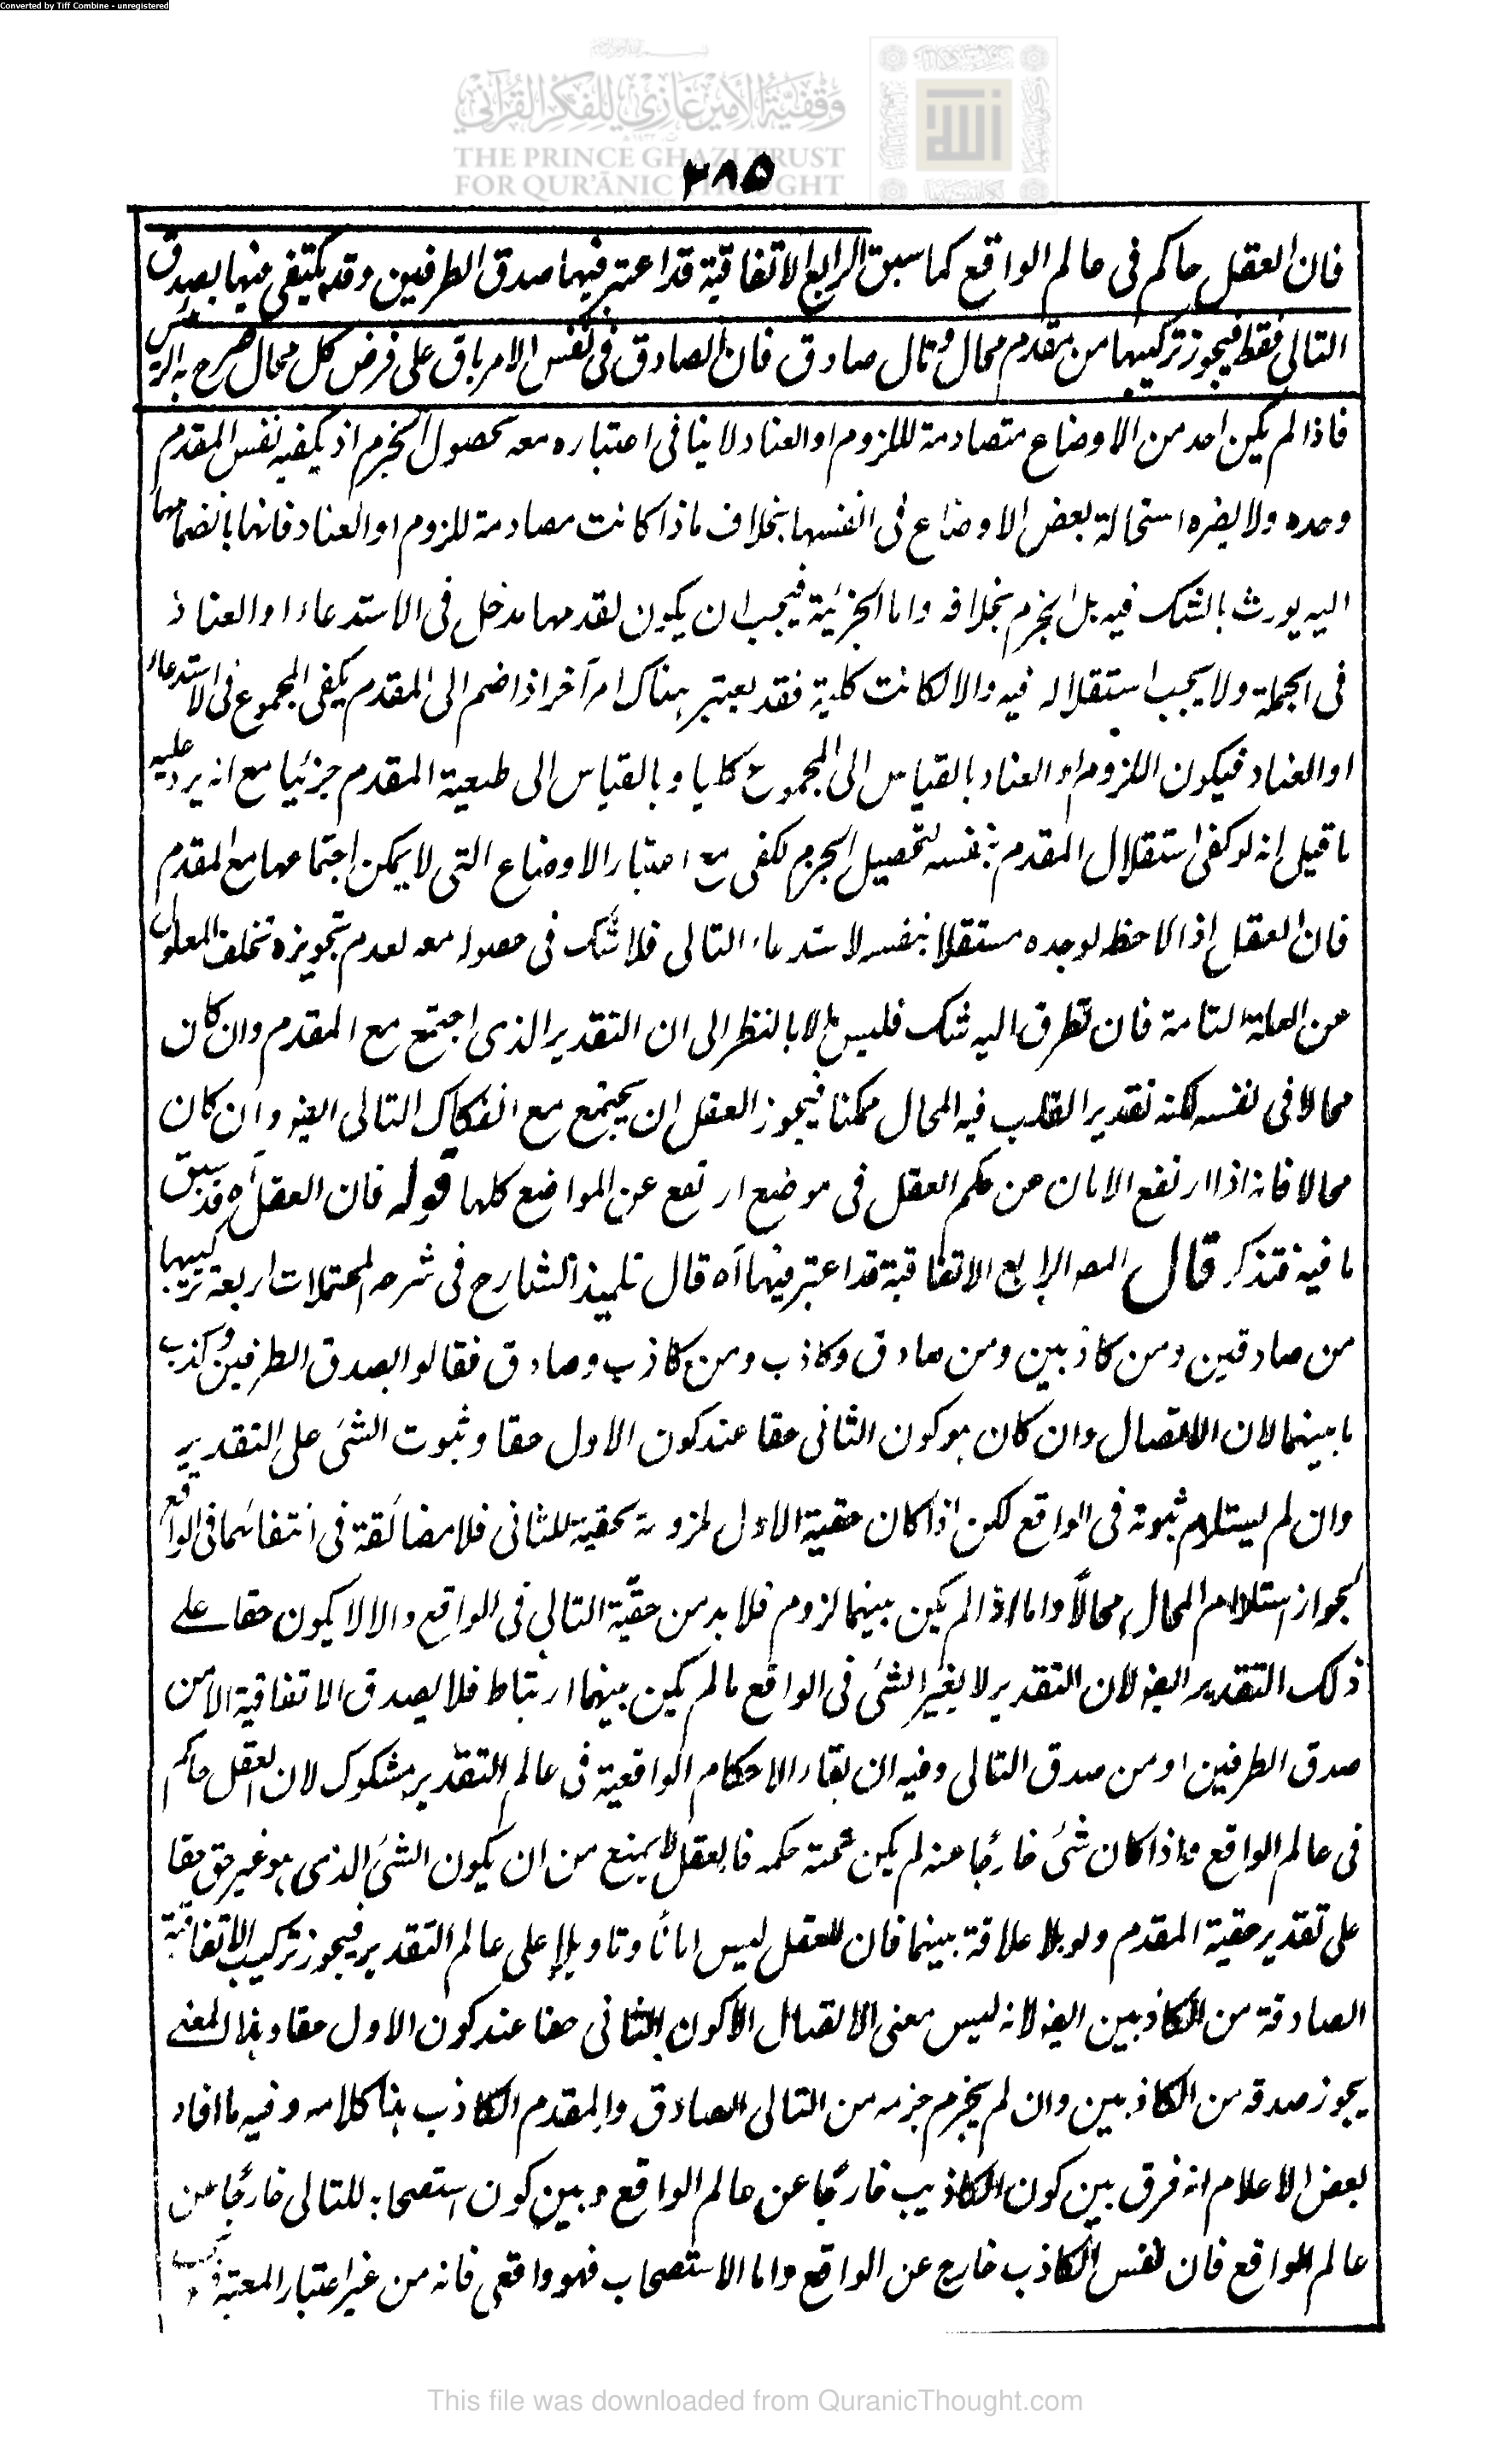 Converted by Tiff Combine - unregistered
وقفية الأمير غازي للفكر القرآني
THE PRINCE GHAZI TRUST
FOR QUR'ĀNIC THOUGHT
٣٨٥
فان العقل حاكم فى عالم الواقع كما سبق الرابع الاتفاقية قد اعتبر فيها صدق الطرفين وقد يكتفى فيها بصدق
التالى فقط فيجوز تركيبها من مقدم محال وتال صادق فان الصادق فى نفس الامر باق على فرض كل محال صرح به الرئيس
فاذا لم يكن احد من الاوضاع متصادمة للزوم او العناد لا ينافى اعتباره معه حصول الجزم اذ يكفيه نفس المقدم
وحده ولا يضره استحالة بعض الاوضاع فى انفسها بخلاف ما ذا كانت مصادمة للزوم او العناد فانها بانضمامها
اليه يورث بالشك فيه بل الجزم بخلافه واما الجزئية فيجب ان يكون لمقدمها مدخل فى الاستدعاء او العناد
فى الجملة ولا يجب استقلاله فيه والا لكانت كلية فقد يعتبر هناك امر آخر اذا ضم الى المقدم يكفى المجموع فى الاستدعاء
او العناد فيكون اللزوم او العناد بالقياس الى المجموع كليا وبالقياس الى طبيعة المقدم جزئيا مع انه يرد عليه
ما قيل انه لو كفى استقلال المقدم بنفسه لتحصيل الجزم لكفى مع اعتبار الاوضاع التى لا يمكن اجتماعها مع المقدم
فان العقل اذا لاحظ لوحده مستقلا بنفسه لاستدعاء التالى فلا شك فى حصوله معه لعدم تجويزه تخلف المعلول
عن العلة التامة فان تطرق اليه شك فليس الا بالنظر الى ان التقدير الذى اجتمع مع المقدم وان كان
محالا فى نفسه لكنه تقدير انقلب فيه المحال ممكنا فيجوز العقل ان يجتمع مع انفكاك التالى ايضا وان كان
محالا فانه اذا ارتفع الامان عن حكم العقل فى موضع ارتفع عن المواضع كلها قوله فان العقل آه قد سبق
ما فيه فتذكر قال المصـ الرابع الاتفاقية قد اعتبر فيها آه قال تلميذ الشارح فى شرحه المحتملات اربعة تركيبها
من صادقين ومن كاذبين ومن صادق وكاذب ومن كاذب وصادق فقالوا بصدق الطرفين وكذب
ما بينهما لان الاتصال وان كان هو كون الثانى حقا عند كون الاول حقا وثبوت الشئ على التقدير
وان لم يستلزم ثبوته فى الواقع لكن اذا كان حقية الاول ملزومة لحقية الثانى فلا مضائقة فى انتفائهما فى الواقع
لجواز استلزام المحال محالاً واما اذا لم يكن بينهما لزوم فلا بد من حقية التالى فى الواقع والا لا يكون حقا على
ذلك التقدير ايضا لان التقدير لا يغير الشئ فى الواقع ما لم يكن بينهما ارتباط فلا يصدق الاتفاقية الا من
صدق الطرفين او من صدق التالى وفيه ان بقاء الاحكام الواقعية فى عالم التقدير مشكوك لان العقل حاكم
فى عالم الواقع واذا كان شئ خارجا عنه لم يكن ثمة حكمه فالعقل لا يمنع من ان يكون الشئ الذى هو غير حق حقا
على تقدير حقية المقدم ولو بلا علاقة بينهما فان للعقل ليس امانا وتاويلا على عالم التقدير فيجوز تركيب الاتفاقية
الصادقة من الكاذبين ايضا لانه ليس معنى الاتصال الا كون الثانى حقا عند كون الاول حقا وبهذا المعنى
يجوز صدقه من الكاذبين وان لم يجزم جزمه من التالى الصادق والمقدم الكاذب هذا كلامه وفيه ما افاد
بعض الاعلام انه فرق بين كون الكاذيب خارجا عن عالم الواقع وبين كون استصحابه للتالى خارجا عن
عالم الواقع فان نفس الكاذب خارج عن الواقع واما الاستصحاب فهو واقعى فانه من غير اعتبار المعتبر
This file was downloaded from QuranicThought.com